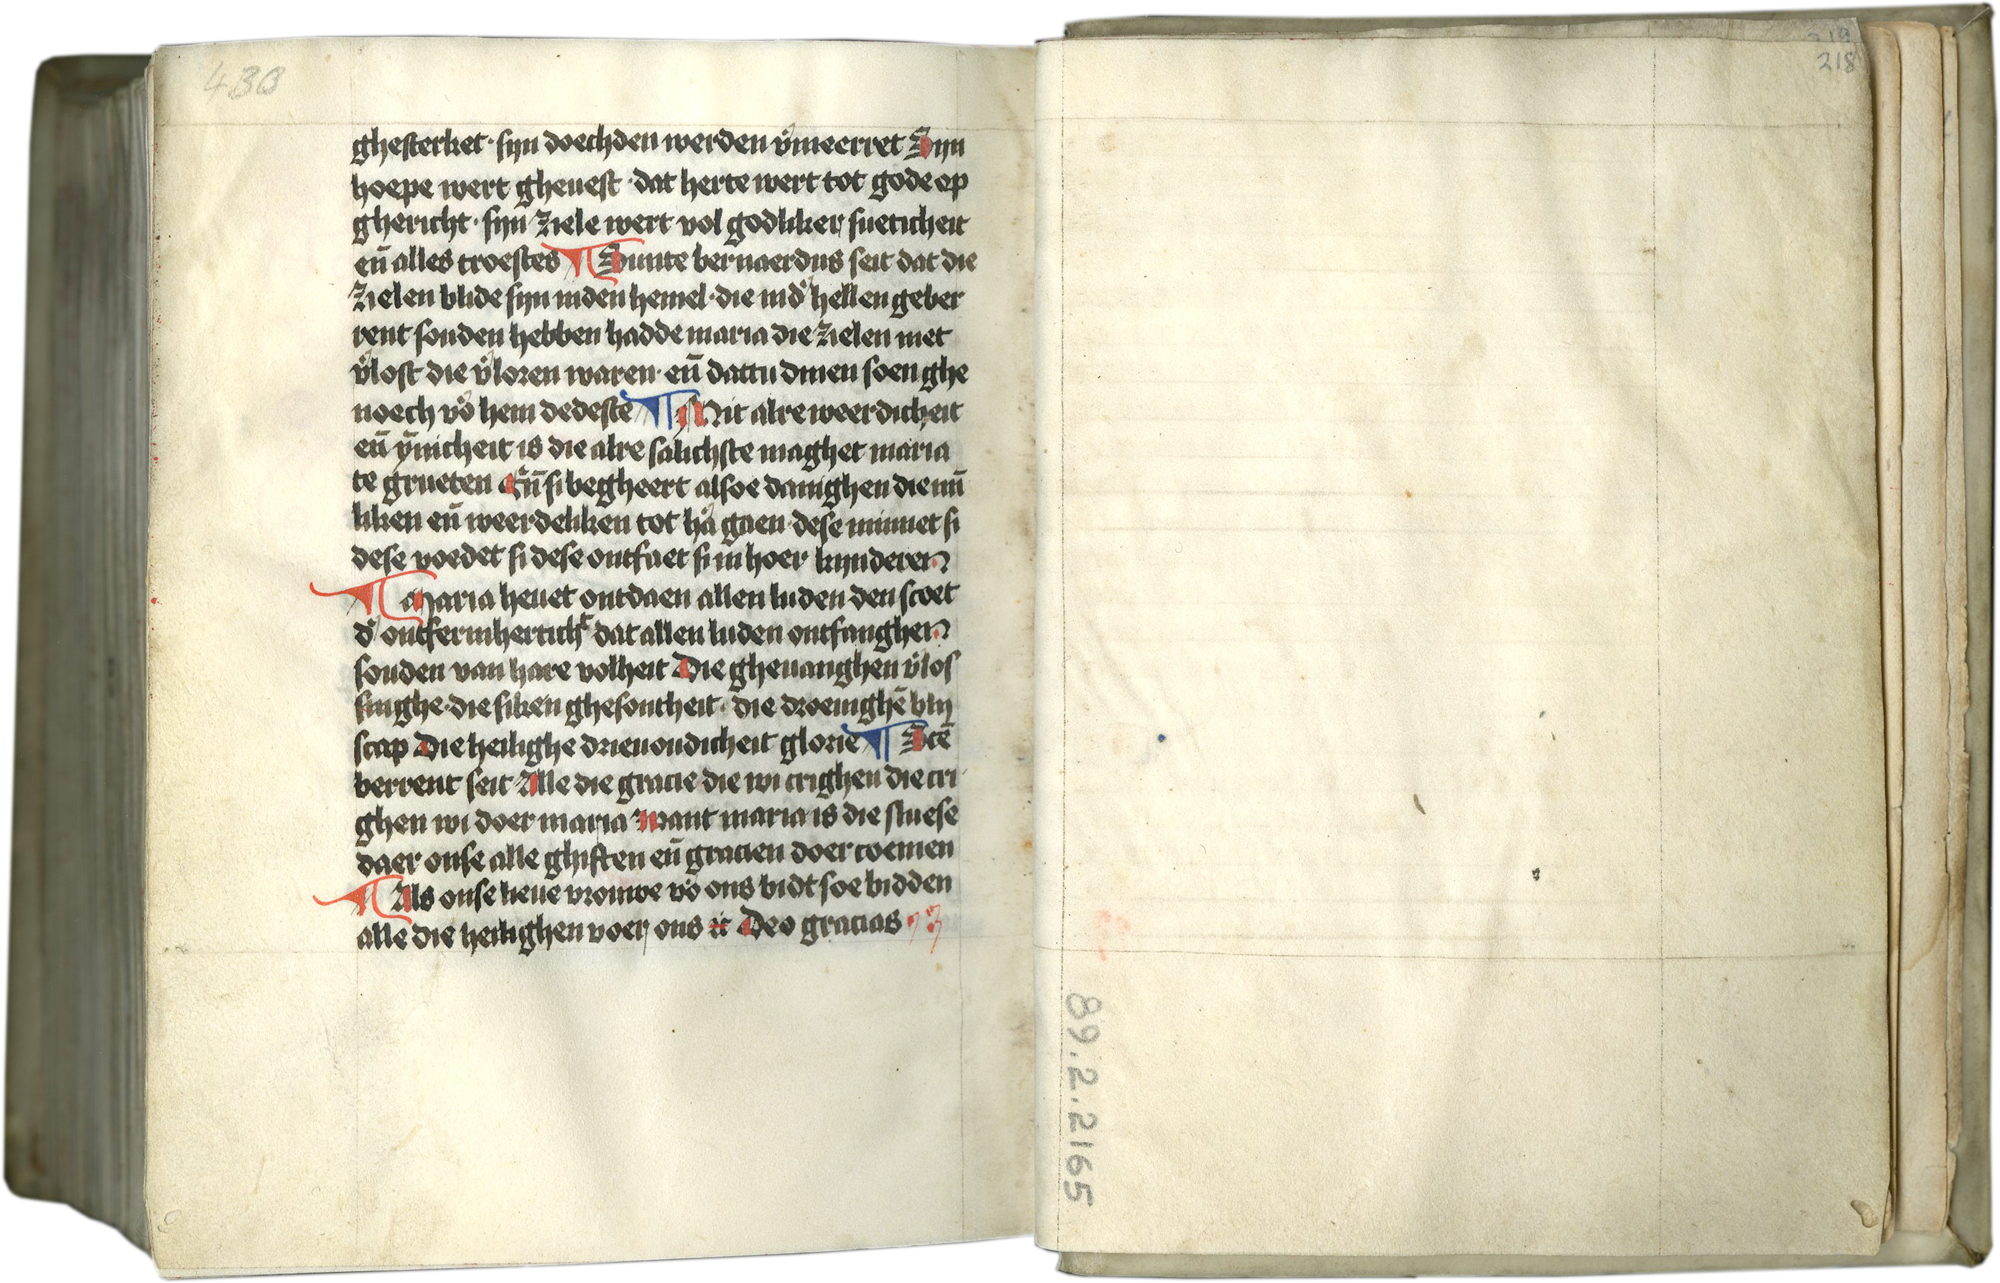 430
ghesterket · sijn doechden werden v̕meerret Sijn
hoepe wert gheuest · dat herte wert tot gode op
ghericht · sijn ziele wert vol godliker sueticheit
en̄ alles troestes ¶ Sunte bernaerdus seit dat die
zielen blide sijn inden hemel · die ind̕ hellen geber
rent souden hebben hadde maria die zielen niet
v̕lost die v̕loren waren · en̄ dattu dinen soen ghe
noech vo̕ hem dedeste ¶ Mit alre weerdicheit
en̄ ȳnicheit is die alre salichste maghet maria
te grueten En̄ si begheert alsoe danighen die nn̄
liken en̄ weerdeliken tot ha̕ gaen · dese minnet si
dese voedet si dese ontfaet si in hoer kijnderen
¶ Maria heuet ontdaen allen luden den scoet
d̕ ontfermherticht dat allen luden ontfanghen
souden van hare volheit Die gheuanghen v̕los
singhe · die siken ghesontheit · die droeuighē blij
scap Die heilighe drieuoudicheit glorie ¶ Stē
berrent seit Alle die gracie die wi crighen die cri
ghen wi doer maria want maria is die sluese
daer onse alle ghiften en̄ gracien doer coemen
¶ Als onse lieue vrouwe vo̕ ons bidt soe bidden
alle die heilighen voer ons Deo gracias
218
89.2.2165